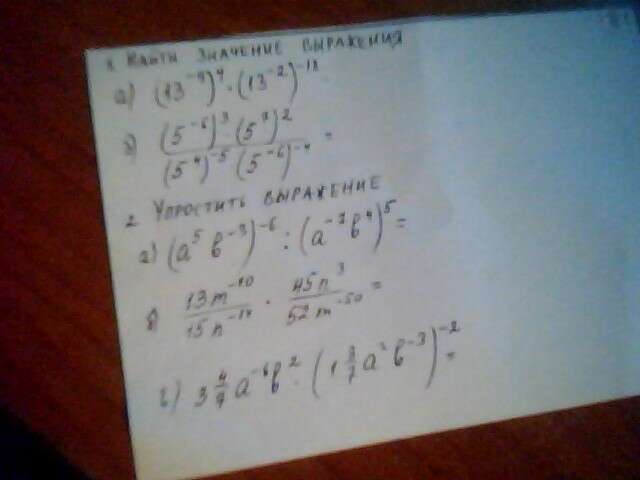 1. НАЙТИ ЗНАЧЕНИЕ ВЫРАЖЕНИЯ
а) (13⁻⁹)⁴ · (13⁻²)⁻¹²
б) (5⁻⁶)³ · (5⁷)² / (5⁴)⁻⁵ (5⁻⁶)⁻⁴ =
2 УПРОСТИТЬ ВЫРАЖЕНИЕ
а) (a⁵ b⁻³)⁻⁶ : (a⁻² b⁴)⁵ =
б) 13m⁻¹⁰ / 15n⁻¹⁴ · 45n³ / 52m⁻⁵⁰ =
г) 3 4/7 a⁻⁶ b² · (1 3/7 a² b⁻³)⁻² =